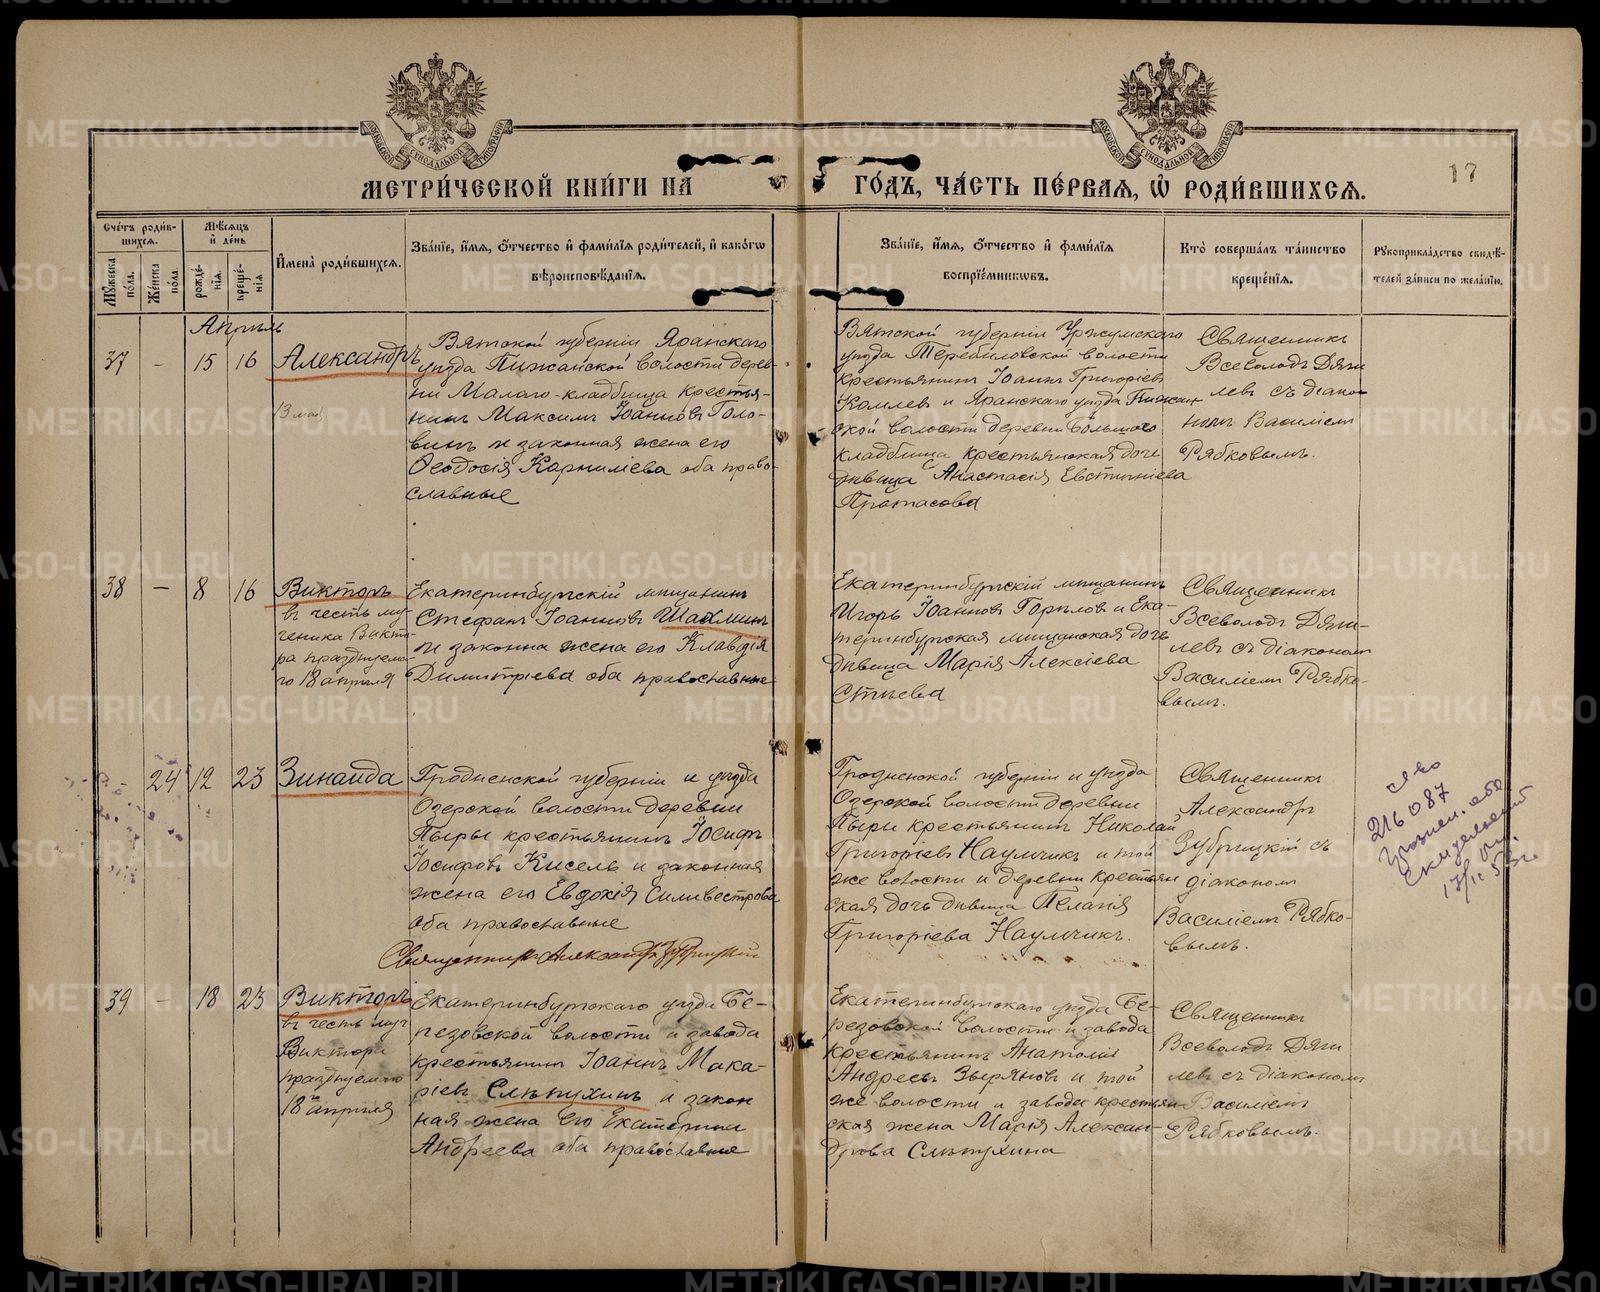 МЕТРИ́ЧЕСКОЙ КНИ́ГИ НА
ГО́ДЪ, ЧА́СТЬ ПЕ́РВАѦ, Ѡ҆ РОДИ́ВШИХСѦ.
17
Сче́тъ роди́в-
шихсѧ.
Мѣ́сѧцъ
и҆ де́нь
Мꙋ́жеска по́ла.
Же́нска по́ла.
рожде́-нїѧ.
креще́-нїѧ
И҆мена̀ роди́вшихсѧ.
Зва́нїе, и҆́мѧ, ѻ҆́тчество и҆ фами́лїѧ роди́телей, и҆ како́гѡ
вѣроисповѣ́данїѧ.
Зва́нїе, и҆́мѧ, ѻ҆́тчество и҆ фами́лїѧ
воспрїе́мникѡвъ.
Кто̀ соверша́лъ та́инство
креще́нїѧ.
Рꙋкоприкла́дство свидѣ́-
телей за́писи по жела́нїю.
Апрѣль
37
-
15
16
Александръ
13 май
Вятской губерніи Яранскаго
уѣзда Пижанской волости дерев-
ни Малаго-кладбища крестья-
нинъ Максимъ Іоанновъ Голо-
винъ и законная жена его
Ѳеодосія Карниліева оба право-
славные
Вятской губерніи Уржумскаго
уѣзда Теребиловской волости
крестьянинъ Іоаннъ Григоріевъ
Комлевъ и Яранскаго уѣзда Пижан
ской волости деревни Большого
кладбища крестьянская дочь
дѣвица Анастасія Евстигніева
Протасова
Священникъ
Всеволодъ Дяги
левъ съ діако
номъ Василіемъ
Рябковымъ.
38
-
8
16
Викторъ
въ честь му-
ченика Викто-
ра празднуема-
го 18 апрѣля
Екатеринбургскій мѣщанинъ
Стефанъ Іоанновъ Шаклинъ
и законна жена его Клавдія
Димитріева оба православные
Екатеринбургскій мѣщанинъ
Игорь Іоанновъ Горѣловъ и Ека-
теринбургская мѣщанская дочь
дѣвица Марія Алексіева
Священникъ
Всеволодъ Дяги-
левъ съ діакономъ
Василіемъ Рябко-
вымъ.
-
24
12
23
Зинаида
Гродненской губерніи и уѣзда
Озерской волости деревни
Пыры крестьянинъ Іосифъ
Іосифовъ Кисель и законная
жена его Евдокія Силивестрова
оба православные
Священникъ Александръ Зубрицкій
Гродненской губерніи и уѣзда
Озерской волости деревни
Пыры крестьянинъ Николай
Григоріевъ Наумчикъ и той
же волости и деревни крестьян
ская дочь дѣвица Пелагія
Григоріева Наумчикъ.
Священникъ
Александръ
Зубрицкій съ
діакономъ
Василіемъ Рябко-
вымъ.
216087
39
-
18
23
Викторъ
въ честь муч
Виктора
празднуемаго
18го апрѣля
Екатеринбургскаго уѣзда Бе-
резовской волости и завода
крестьянинъ Іоаннъ Мака-
ріевъ Слѣпухинъ и закон
ная жена его Екатерина
Андреева оба православные
Екатеринбургскаго уѣзда Бе-
резовской волости и завода
крестьянинъ Анатолій
Андреевъ Зыряновъ и той
же волости и завода крестьян
ская жена Марія Алексан-
дрова Слѣпухина
Священникъ
Всеволодъ Дяги
левъ съ діакономъ
Василіемъ
Рябковымъ.
METRIKI.GASO-URAL.RU